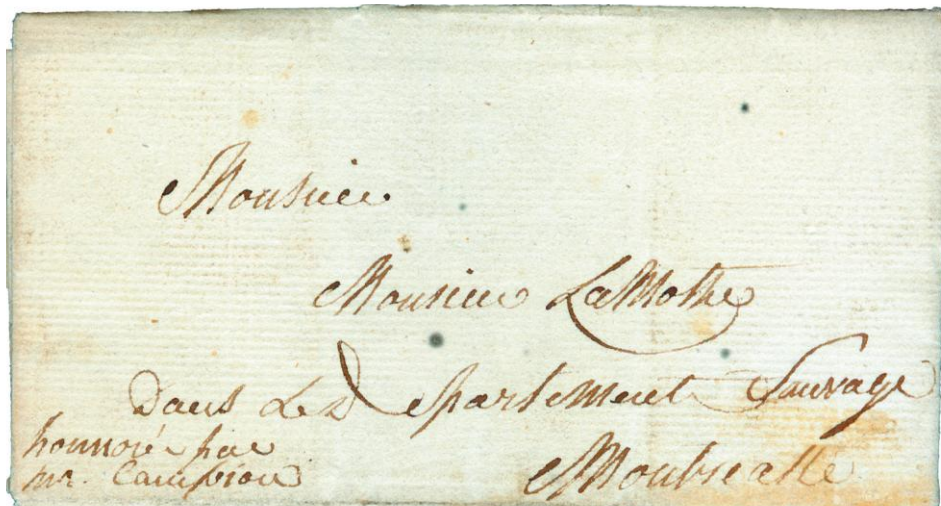 Monsieur
Monsieur LaMothe
Dans Le Departement Sauvage
Montrealle
honnoré par
mr. Campion